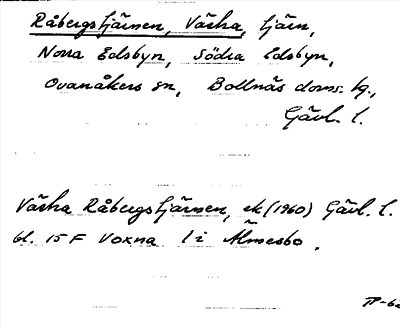 Råbergstjärnen, Västra, tjärn,
Norra Edsbyn, Södra Edsbyn,
Ovanåkers sn, Bollnäs doms. tg.,
Gävl. l.
Västra Råbergstjärnen, ek (1960) Gävl. l.
bl. 15 F Voxna 1 i Älmesbo.